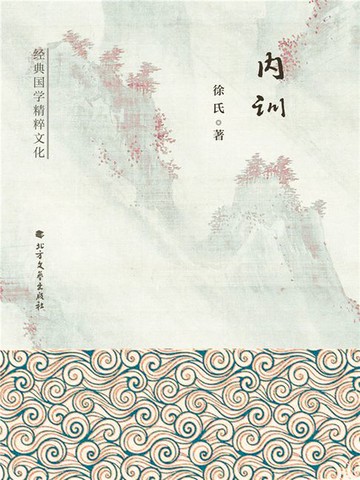 内训
徐氏 著
经典国学精粹文化
北方文艺出版社